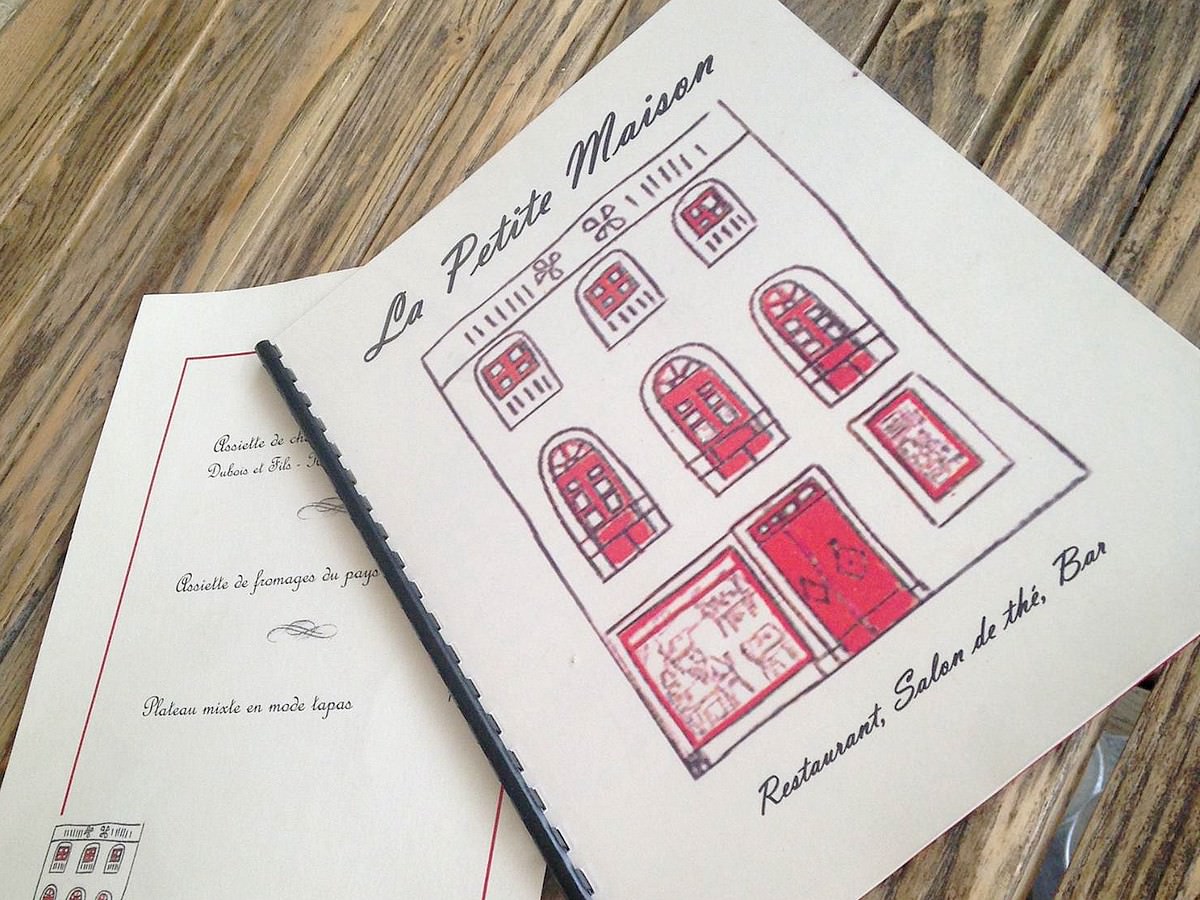 La Petite Maison
Restaurant, Salon de thé, Bar
Assiette de
Dubois et Fils -
Assiette de fromages du pays
Plateau mixte en mode tapas